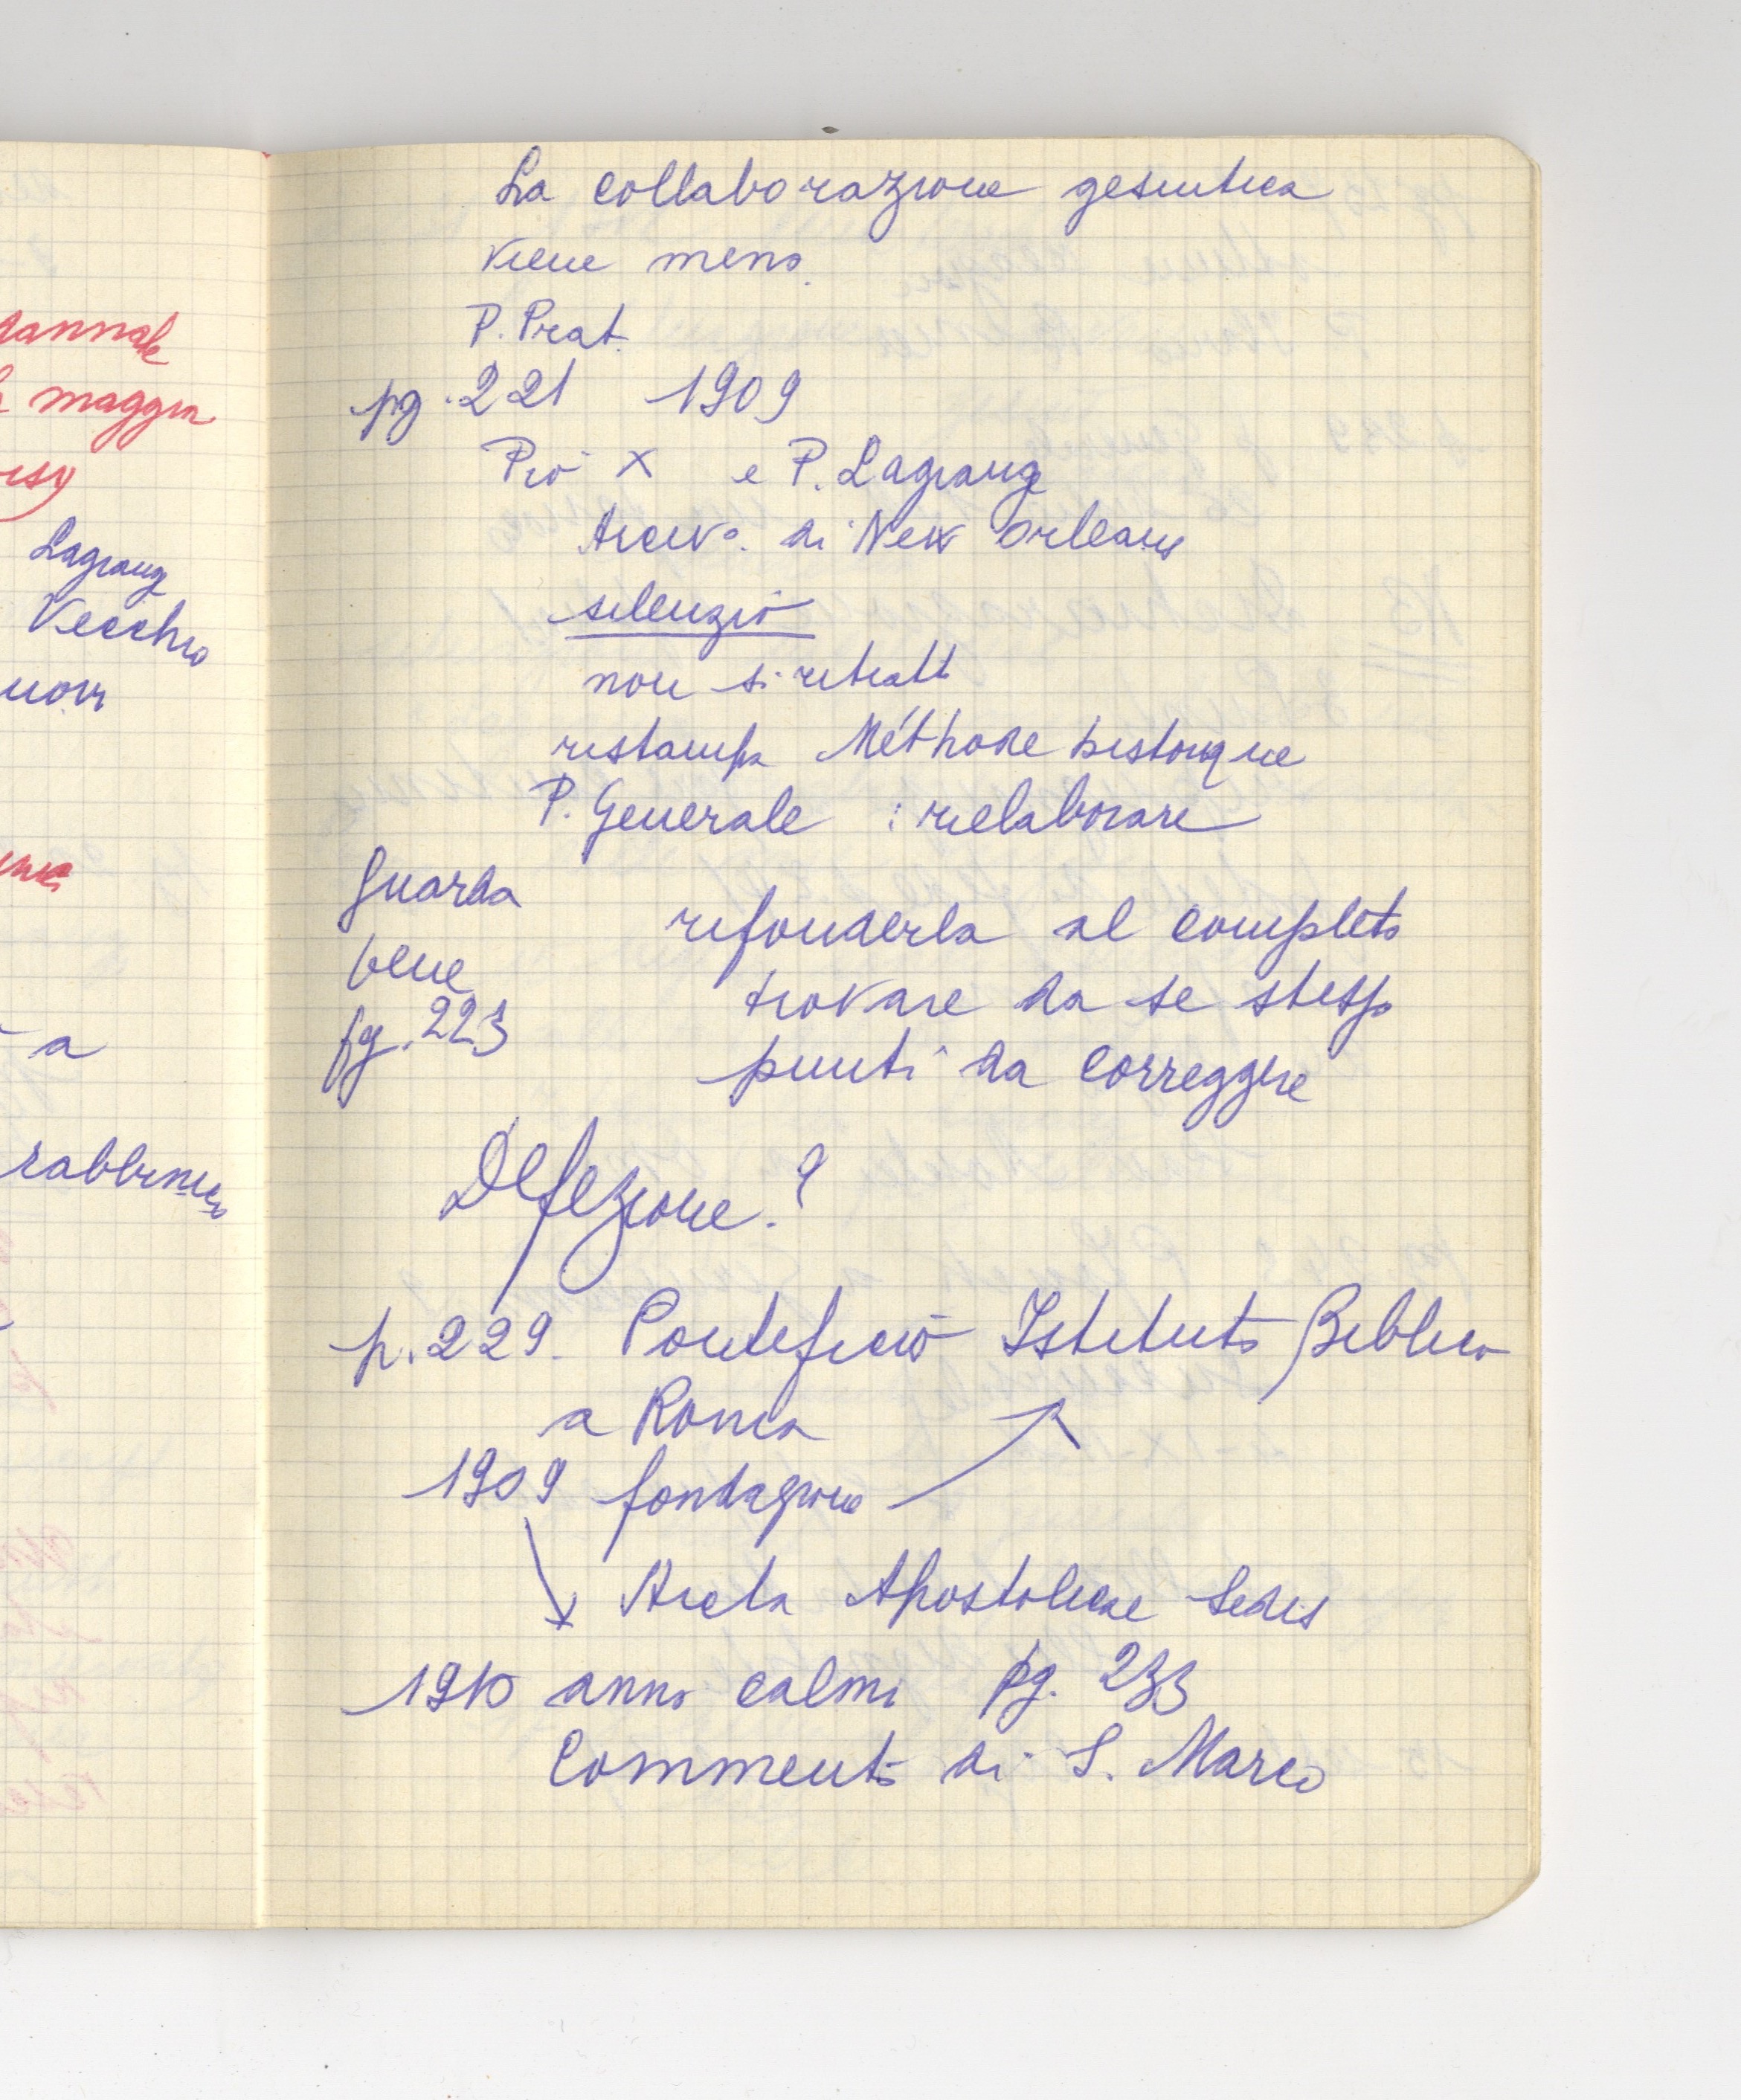 dannale
maggior
Lagrange
Vecchio
a
rabbinico
La collaborazione gesuitica
viene meno.
P. Prat.
pg. 221 1909
Pio X e P. Lagrange
Arciv°. di New Orleans
silenzio
non si ritratt
ristampa Méthode historique
P. Generale : rielaborare
Guarda
bene
pg. 223
rifonderla al completo
trovare da se stesso
punti da correggere
Defezione.?
p. 229. Pontificio Istituto Biblico
a Roma
1909 fondazione
Apostolicae Sedis
1910 anno calmo pg. 233
Commento di S. Marco